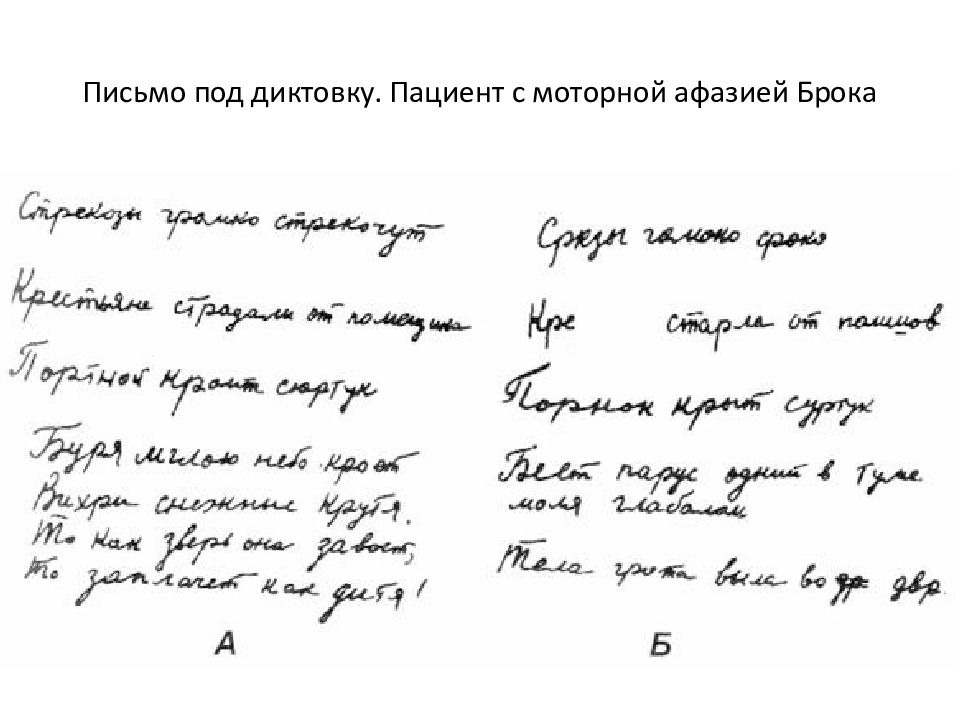 Письмо под диктовку. Пациент с моторной афазией Брока
Стрекозы громко стрекочут
Крестьяне страдали от помещика
Портной кроит сюртук
Буря мглою небо кроет
Вихри снежные крутя.
То как зверь она завоет,
то заплачет как дитя!
А
Срезы гамоко сроко
Кре старла от помшов
Порнок крыт суртук
Беет парус одний в туме
моля глабалам
Тела грота выла во др двр.
Б